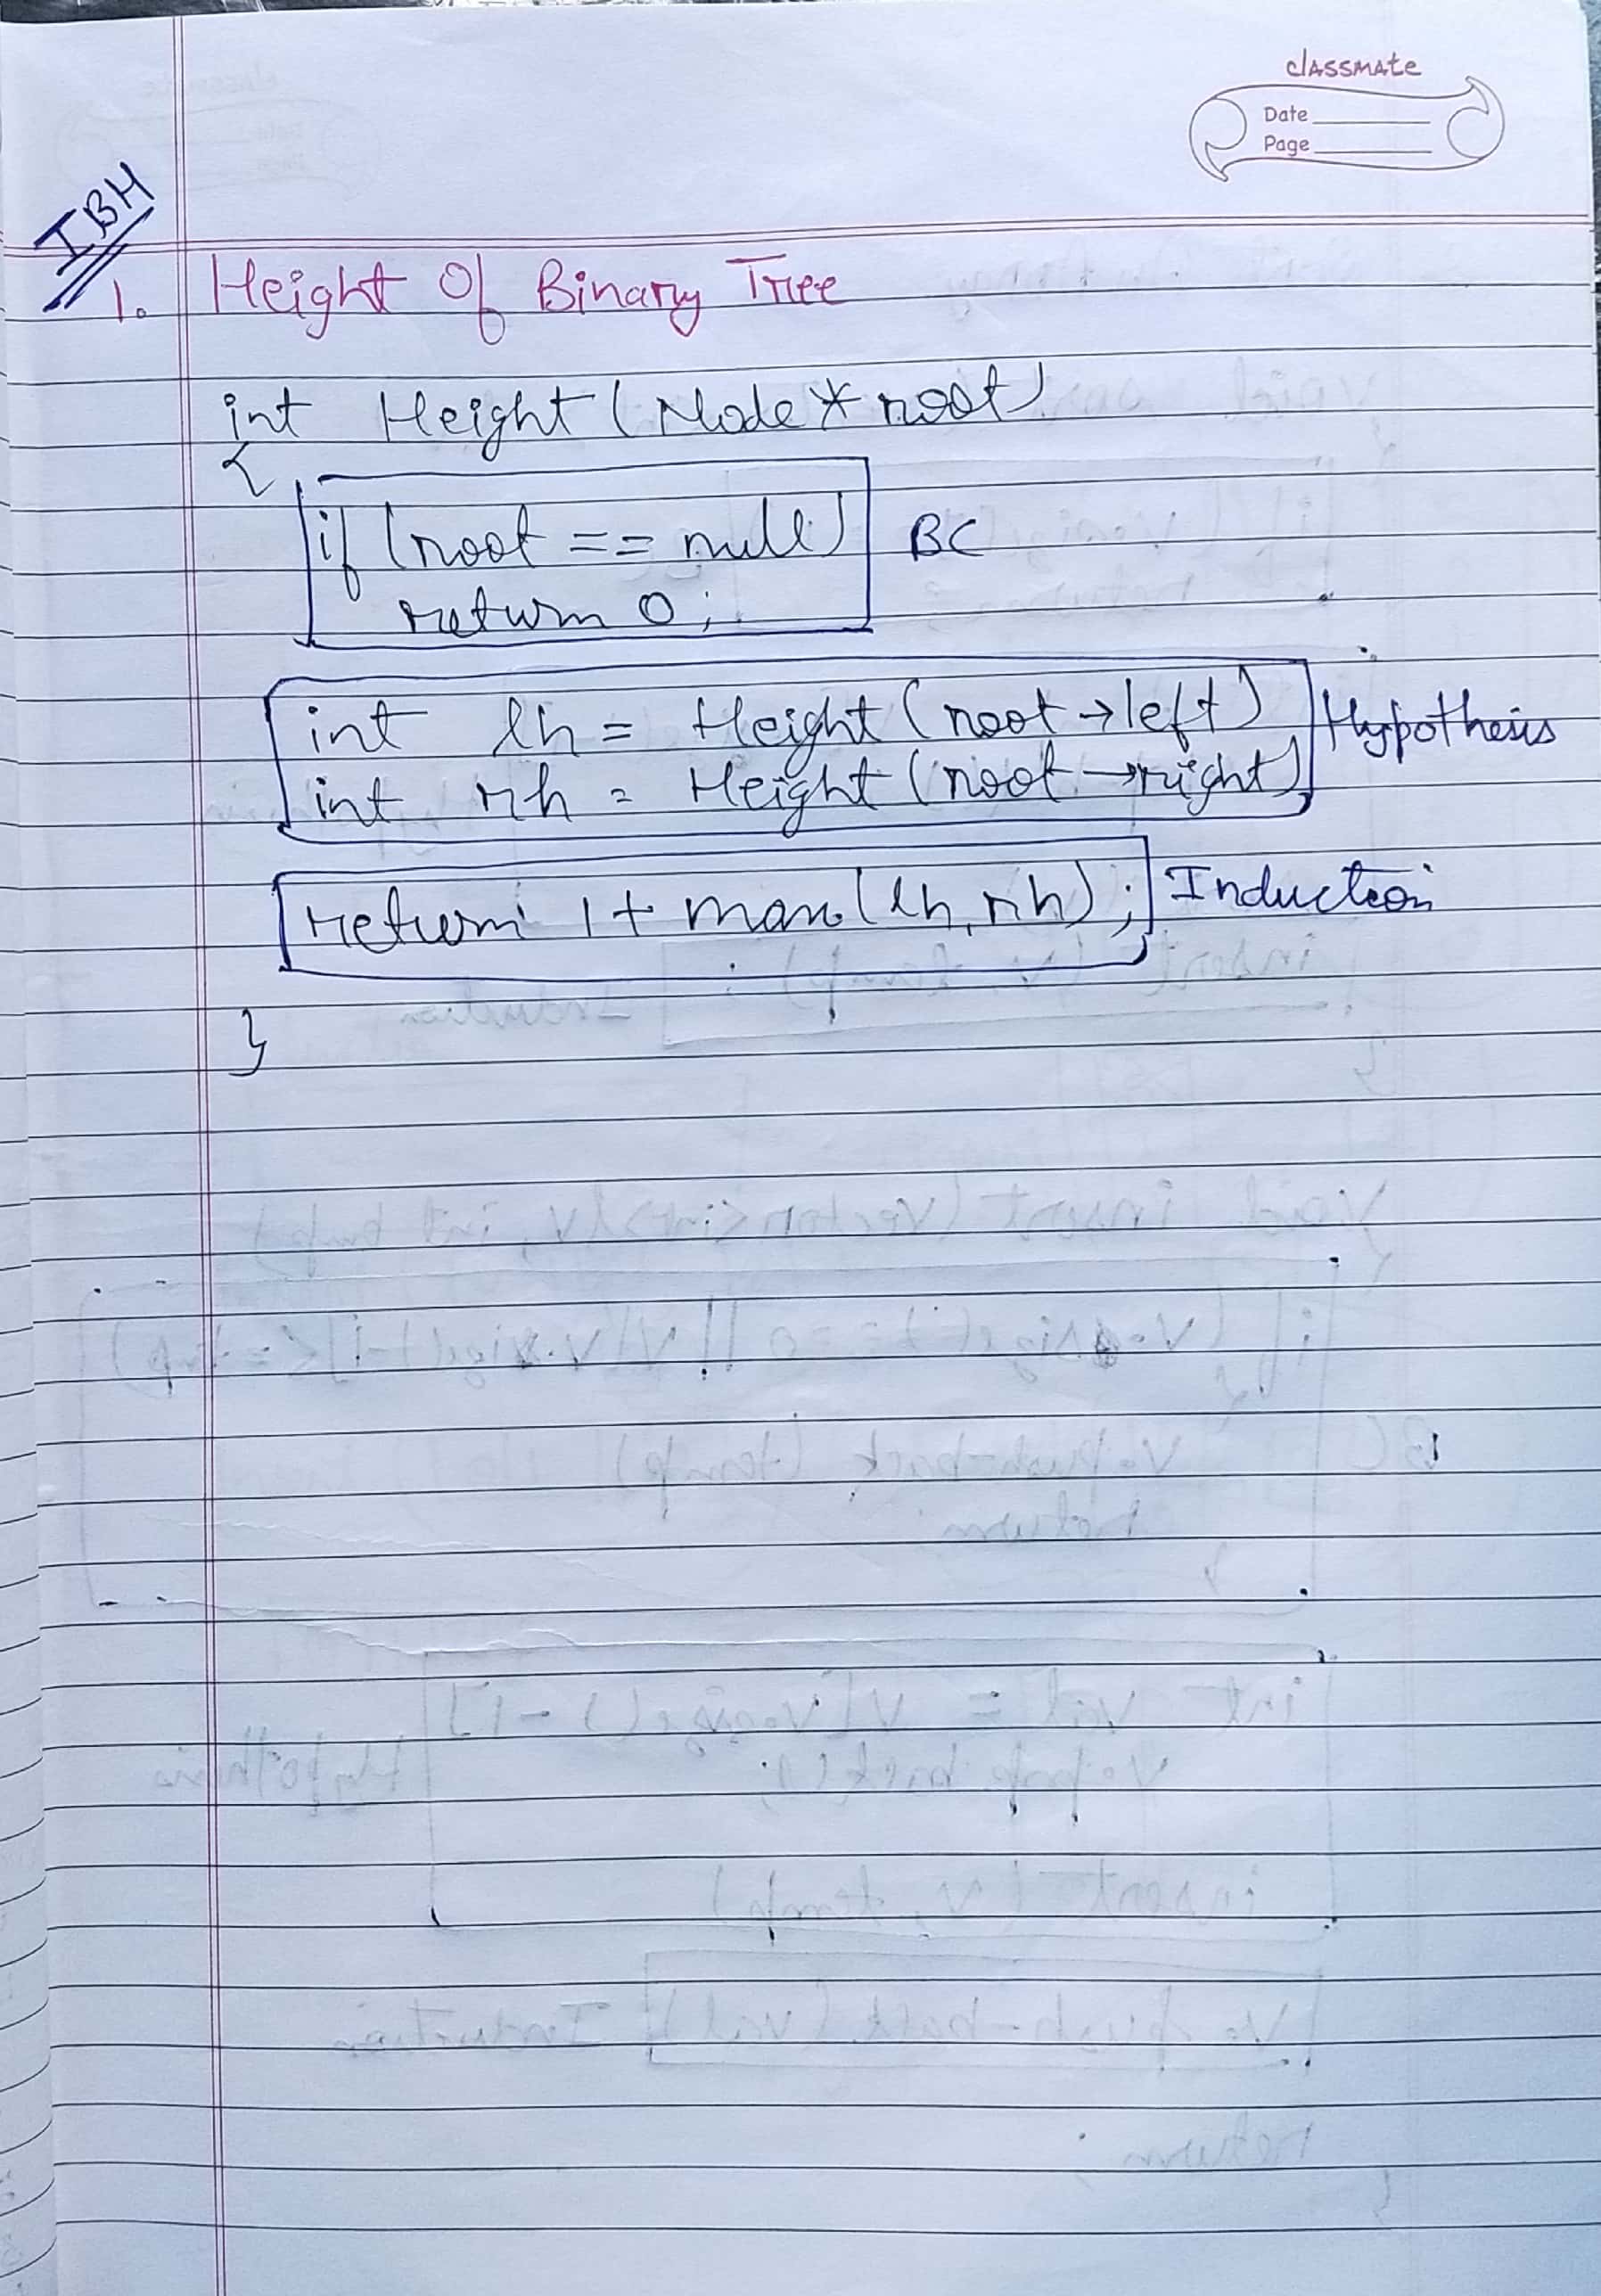 classmate
Date
Page
IBH
1. Height Of Binary Tree
int Height (Node * root)
{
if (root == null) BC
return 0;
int lh = Height (root → left) Hypothesis
int rh = Height (root → right)
return 1 + max (lh, rh); Induction
}